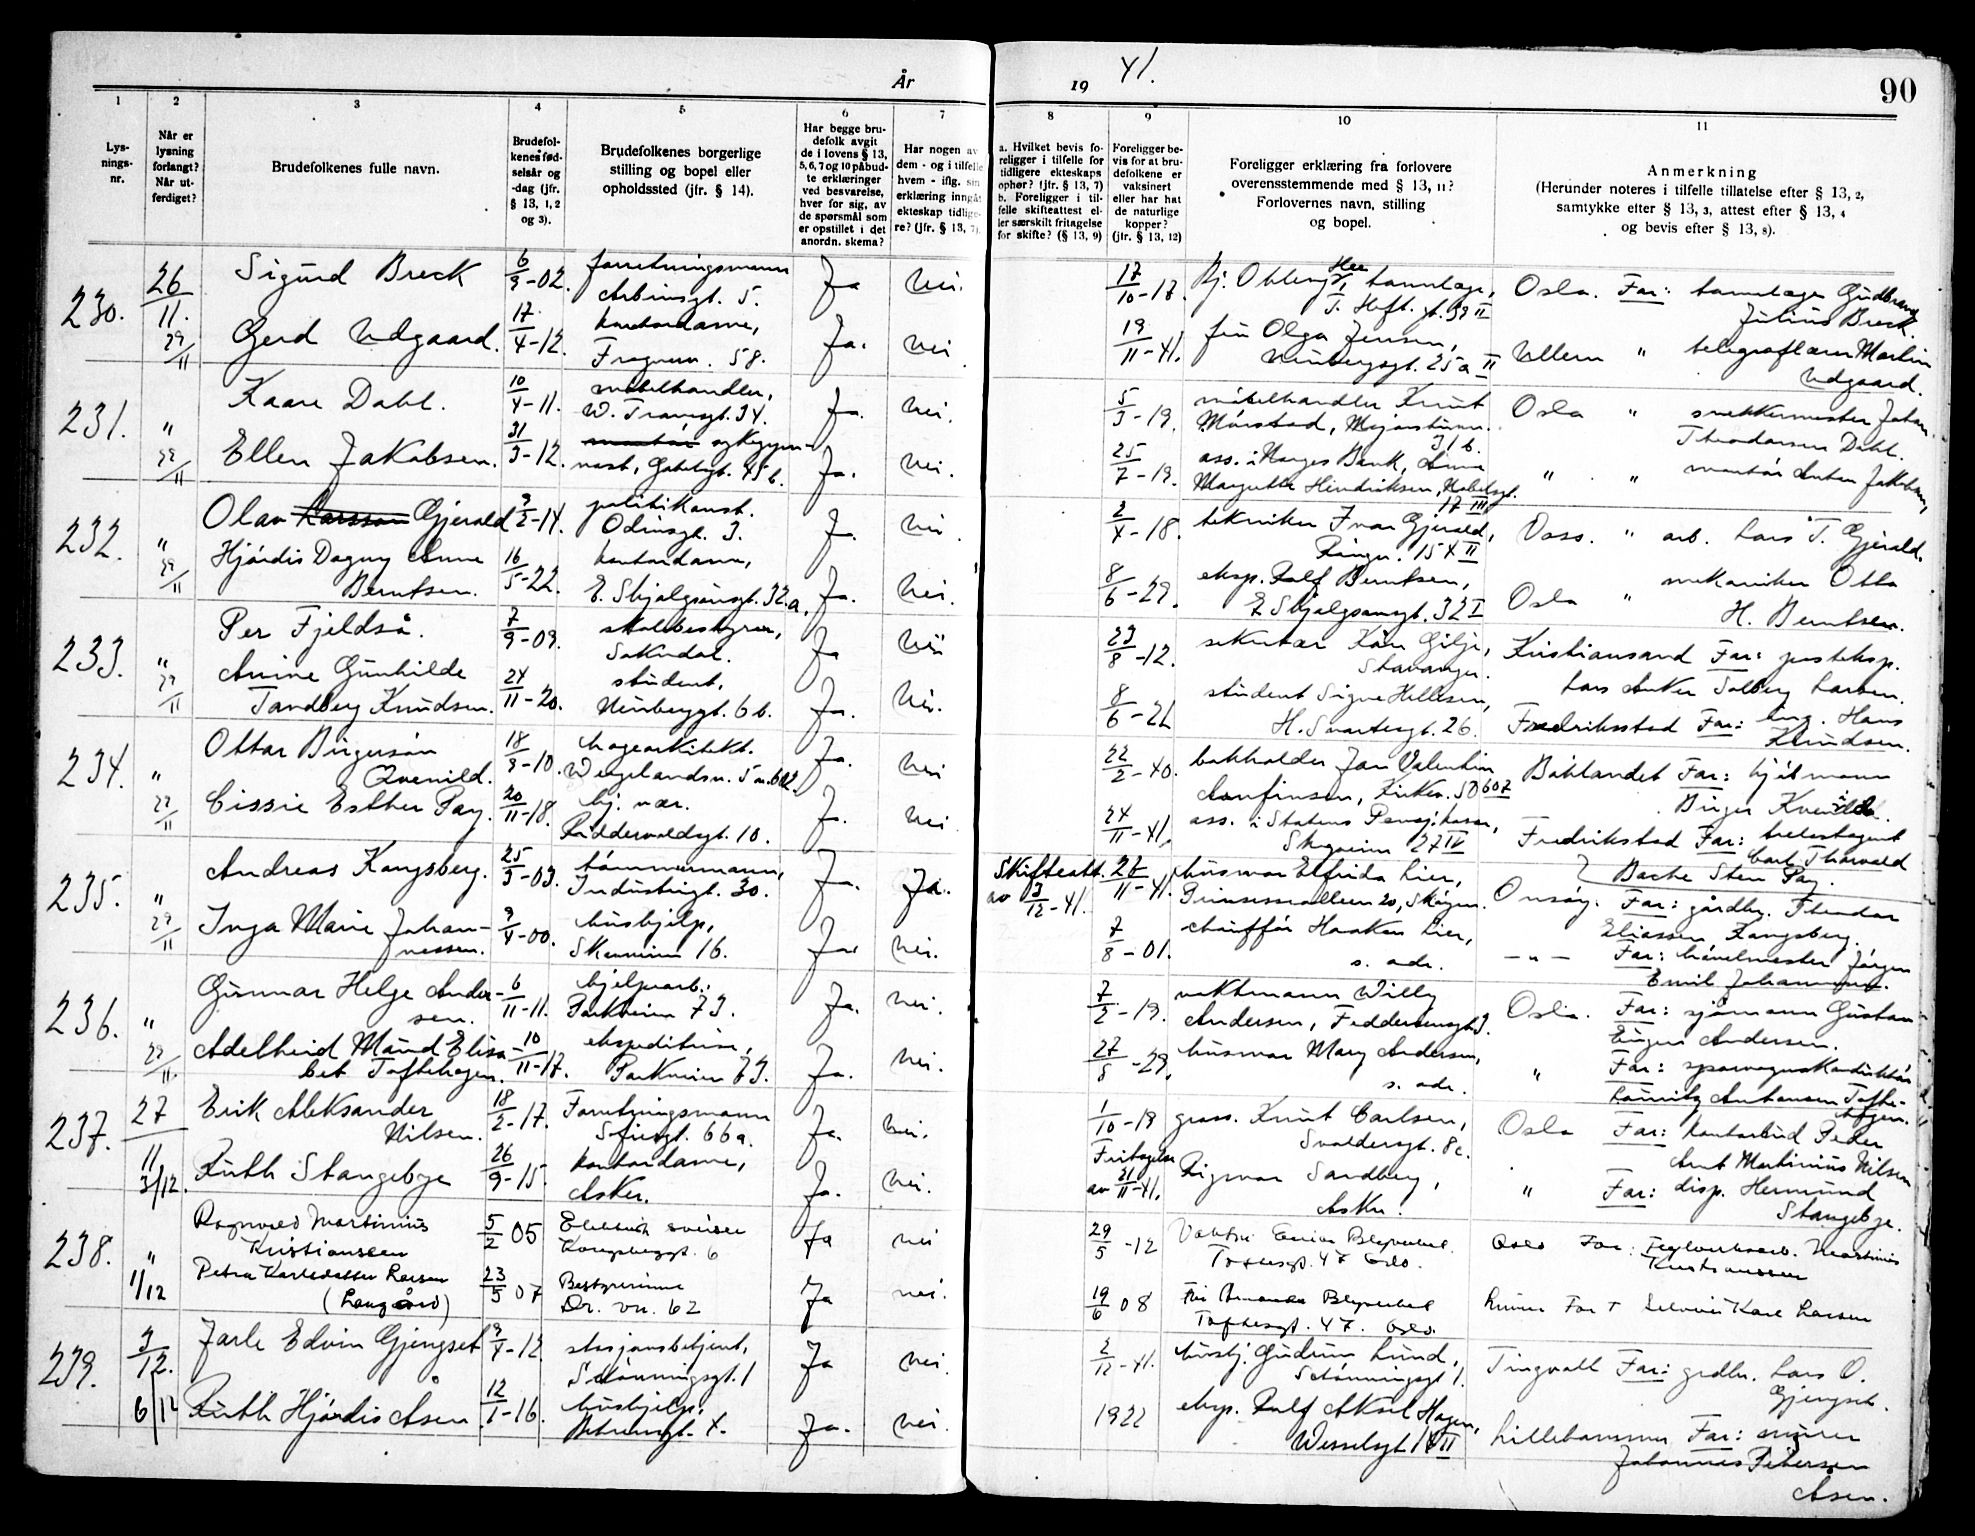 År 1941.
90
1
2
3
4
5
6
7
8
9
10
11
Lysningsnr.
Når er lysning forlangt? Når utferdiget?
Brudefolkenes fulle navn.
Brudefolkenes fødselsår og -dag (jfr. § 13, 1, 2 og 3).
Brudefolkenes borgerlige stilling og bopel eller opholdssted (jfr. § 14).
Har begge brudefolk avgit de i lovens § 13, 5, 6, 7 og 10 påbudte erklæringer ved besvarelse, hver for sig, av de spørsmål som er opstillet i det anordn. skema?
Har nogen av dem - og i tilfelle hvem - iflg. sin erklæring inngått ekteskap tidligere? (jfr. § 13, 7).
a. Hvilket bevis foreligger i tilfelle for tidligere ekteskaps ophør? (jfr. § 13, 7)
b. Foreligger i tilfelle skifteattest eller særskilt fritagelse for skifte? (§ 13, 9)
Foreligger bevis for at brudefolkene er vaksinert eller har hat de naturlige kopper? (jfr. § 13, 12)
Foreligger erklæring fra forlovere overensstemmende med § 13, 11? Forlovernes navn, stilling og bopel.
Anmerkning
(Herunder noteres i tilfelle tillatelse efter § 13, 2, samtykke efter § 13, 3, attest efter § 13, 4 og bevis efter § 13, 8).
230. 26/11. Sigurd Breck 6/9-02. forretningsmann Arbinsgt. 5. Ja nei. 17/10-17. Oslo. Far: tannlæge Gudbrand Julius Breck.
29/11 Gerd Udgaard. 17/4-12. kontordame, Frognerv. 58. Ja. nei 19/11-41. fru Olga Jensen, Neubergsgt. 25a II Ullern " telegraf Martin Udgaard.
231. " Kaare Dahl. 10/4-11. møbelhandler, W. Tranesgt. 34. Ja. nei. 5/3-19. møbelhandler Knut Mørstad, Majorstuvn. 31 b. Oslo " snekkermester Johan Theodorsen Dahl.
29/11 Ellen Jakobsen. 31/3-12. sykegymnast, Gabelsgt. 45 b. Ja. nei. 25/7-19. ass. i Norges Bank, Anna Margrethe Hendriksen, Nobelsgt. 17 III " " montør Anton Jakobsen,
232. " Olav Larsson Gjerald 9/2-14. politikonst. Odinsgt. 3. Ja. nei 2/4-18. tekniker Ivar Gjerald, Ringv. 154 II Voss. " arb. Lars T. Gjerald.
29/11 Hjørdis Dagny Anne Berntsen. 16/5-22. kontordame, E. Skjalgsønsgt. 32 a. Ja. nei. 8/6-29. eksp. Rolf Berntsen, E. Skjalgsønsgt. 32 I Oslo " mekaniker Otto H. Berntsen.
233. " Per Fjeldså. 7/9-09. skolbestyrer, Sokndal. Ja nei 23/8-12. sekretær Kåre Gilje, Stavanger. Kristiansand Far: posteksp. Lars Anker Solberg Larsen.
29/11 Anine Gunhilde Tandberg Knudsen. 24/11-20. student, Neuberggt. 6 b. Ja. nei. 8/6-21 student Signe Hellesen, H. Svartesgt. 26. Fredriksstad Far: ing. Hans Knudsen.
234. " Ottar Birgersøn Qvenild. 18/9-10. hagearkitekt. Wergelandsv. 5 Ja. nei 22/2-40. bokholder Jan Valentin Arnfinsen, Kirkev. 50 Båtlandet Far: Birger Kvenild.
29/11 Cissie Esther Pay. 20/11-18. hj. vær. Riddervoldsgt. 10. Ja. nei 24/11-41. ass. i Statens Pensjkasse, 27 IV Fredrikstad Far: Carl Thorvald Bache Sten Pay.
235. " Andreas Kangsberg. 25/5-03. tømmermann, Industrigt. 30. Ja. Ja. Skifteatt. av 3/12-41. 28/11-41. husmor Elfrida Lier, Prinsessealleen 20, Skøyen. Onsøy. Far: gårdbr. Theodor Eliassen Kangsberg.
29/11 Inga Marie Johannessen. 9/4-00. hushjelp, 16. Ja. nei. 7/8-01. chauffør Haakon Lier, s. adr. -"- Far: høvelmester Jørgen Emil Johannessen.
236. " Gunnar Helge Andersen. 6/11-11. hjelpearb. Parkveien 73. Ja. nei. 7/2-19. vaktmann Willy Andersen, Feddersensgt 3. Oslo. Far: sjømann Gustav Eugen Andersen.
29/11. Adelheid Maud Elisabet Toftehagen. 10/11-17. ekspeditrise, Parkveien 73. Ja. nei. 27/8-29. husmor Mary Andersen, s. adr. " Far: sporvognskonduktør Lauritz Anthonsen Toftehagen.
237. 27/11 Erik Aleksander Nilsen. 18/2-17. Forretningsmann Sofiesgt. 66a. Ja. nei. 1/10-18 gross. Knut Carlsen, Svoldersgt. 8c. Oslo Far: kontorbud Peder Arnt Martinius Nilsen
3/12. Ruth Stangebye 26/9-15. kontordame, Asker. Ja. nei. Fritagelse av 21/11-41. Rigmor Sandberg, Asker. " Far: disp. Hermund Stangebye.
238. " Ragnvald Martinius Kristiansen 5/2 05 Elektrisk sveiser Kongsberggt. 6 Ja nei 29/5-12 Toftesgt. 47 Oslo. Oslo Far: Teglverksarb. Martinius Kristiansen
1/12 Petra Karlsdatter Larsen (Langård) 23/5 07 Bestyrerinne Dr. vn. 62 Ja nei. 19/6 08 Toftesgt. 47. Oslo. Far Karl Larsen
239. 3/12. Jarle Edvin Gjengset 9/4-12. stasjonsbetjent, Schønningsgt. 1 Ja nei. 2/12-41. hushj. Gudrun Lund, Schønningsgt 1. Tingvoll Far: grdbr. Lars O. Gjengset.
6/12 Ruth Hjørdis Åsen. 12/1-16. hushjelp, Ja. nei. 1922 eksp. Rolf Aksel Hagen, Wesselsgt II Lillehammer Far: murer Johannes Petersen Åsen.